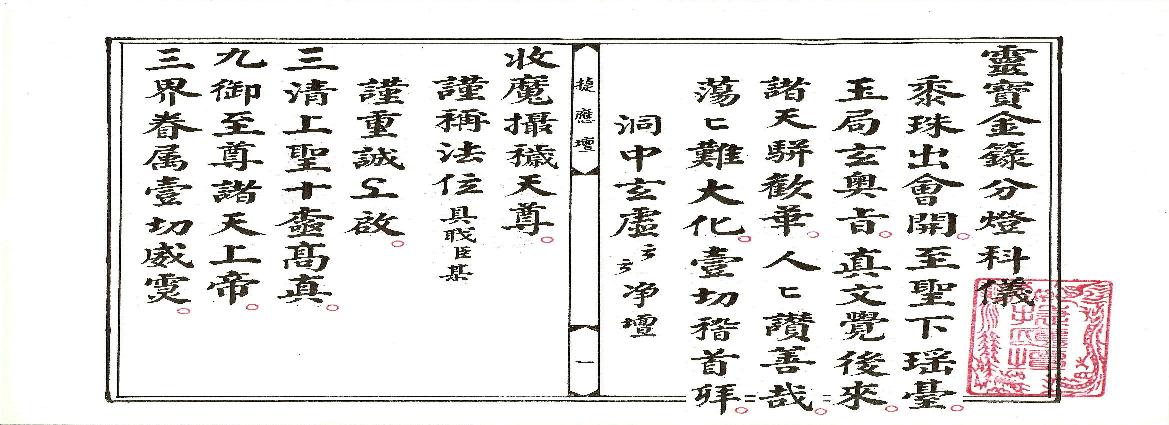 靈寶金錄分燈科儀
黍珠出會開。至聖下瑶臺。
玉局玄奧旨。真文覺後來。
諸天駢歡華。人匕讃善哉。
蕩匕難大化。壹切稽首拜。
洞中玄虛 净壇
捷應壇
一
收魔攝穢天尊。
謹稱法位具職臣某
謹重誠上啟。
三清上聖十高真。
九御至尊諸天上帝。
三界眷属壹切威霊。